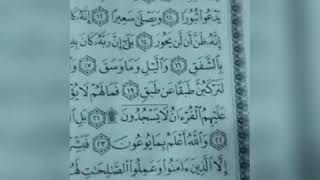 يَدْعُوا۟ ثُبُورًا ١١ وَيَصْلَىٰ سَعِيرًا ١٢ إِنَّهُۥ
إِنَّهُۥ ظَنَّ أَن لَّن يَحُورَ ١٤ بَلَىٰٓ إِنَّ رَبَّهُۥ كَانَ
بِٱلشَّفَقِ ١٦ وَٱلَّيْلِ وَمَا وَسَقَ ١٧
لَتَرْكَبُنَّ طَبَقًا عَن طَبَقٍ ١٩ فَمَا لَهُمْ لَا
عَلَيْهِمُ ٱلْقُرْءَانُ لَا يَسْجُدُونَ ۩ ٢١ بَلِ
٢٢ وَٱللَّهُ أَعْلَمُ بِمَا يُوعُونَ ٢٣
إِلَّا ٱلَّذِينَ ءَامَنُوا۟ وَعَمِلُوا۟ ٱلصَّٰلِحَٰتِ